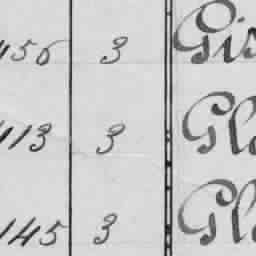 456 3 Gis
413 3 Gla
145 3 Gla